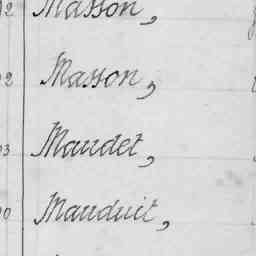 2 Masson,
2 Masson,
3 Maudet,
0 Mauduit,